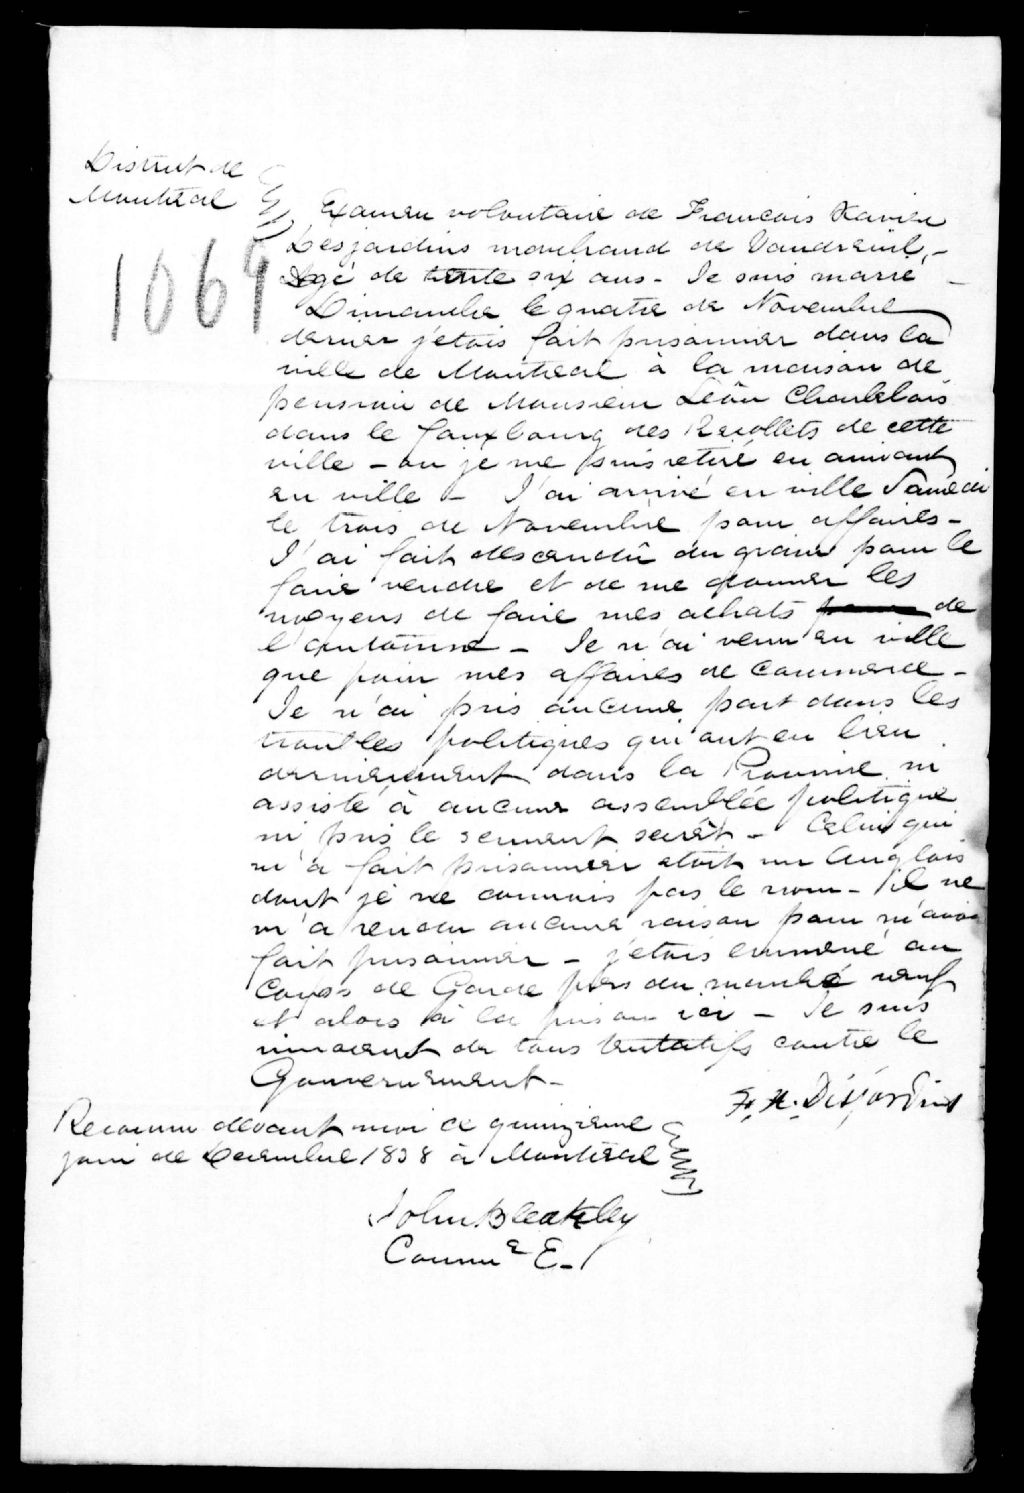 District de
Montréal
1069
Examen volontaire de Francois Xavier
Desjardins marchand de Vaudreuil, -
Agé de trente six ans - Je suis marié -
Dimanche le quatre de Novembre
dernier j'étois fait prisonnier dans la
ville de Montreal à la maison de
pension de Monsieur Léon Charlebois
dans le fauxbourg des Recollets de cette
ville - ou je me suis retiré en arrivant
en ville - J'ai arrivé en ville Samedi
le trois de Novembre pour affaires -
J'ai fait descendu du grain pour le
faire vendre et de me donner les
moyens de faire mes achats de
l'automne - Je n'ai venu en ville
que pour mes affaires de commerce -
Je n'ai pris aucune part dans les
troubles politiques qui ont eu lieu
dernierement dans la Province ni
assisté à aucune assemblée politique
ni pris le serment secrêt - Celui qui
m'a fait prisonnier etoit un Anglois
dont je ne connois pas le nom - il ne
m'a rendu aucune raison pour m'avoir
fait prisonnier - j'etois emmené au
Corps de Garde près du marché neuf
et alors à la prison ici - Je suis
innocent de tous tentatifs contre le
Gouvernement -
F. X. Desjardins
Reconnu devant moi ce quinzieme
jour de Decembre 1838 à Montréal
John Bleakley
Comm.e E. -